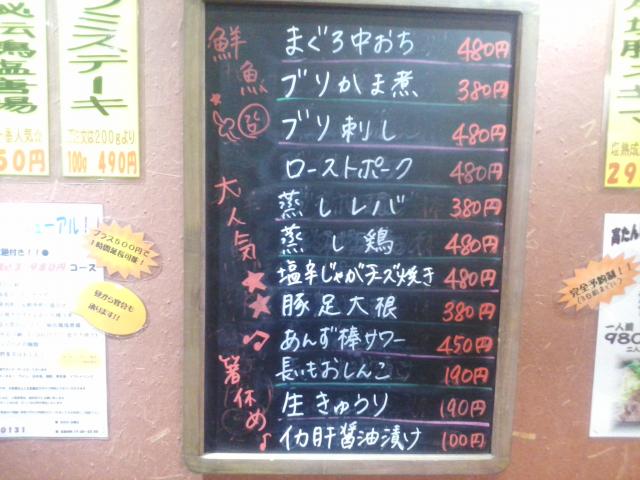 鮮魚
まぐろ中おち 480円
ブリかま煮 380円
ブリ刺し 480円
大人気
ローストポーク 480円
蒸しレバ 380円
蒸し鶏 480円
★塩辛じゃがチーズ焼き 480円
★豚足大根 380円
あんず棒サワー 450円
箸休め♪
長いもおしんこ 190円
生きゅうり 190円
イカ肝醤油漬け 100円
ステーキ
ご注文は200gより
100g 490円
一番人気☆
50円
プラス500円で
1時間延長可能!
980円コース
昼から宴会も
承ります!!
0131
塩熟成
29
高たん
完全予約制!!
一人前
980